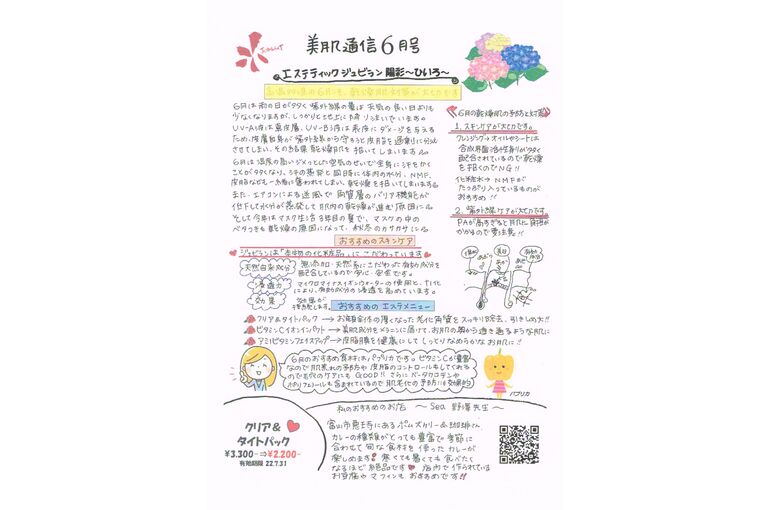 美肌通信6月号
エステティックジュビラン 陽彩～ひいろ～
高温多湿の6月こそ、乾燥肌対策が大切です
6月は雨の日が多く紫外線の量は天気の良い日よりも
少なくなりますが、しっかりと地上に降り注いでいます。
UV-A波は真皮層、UV-B波は表皮にダメージを与える
ため、皮膚自身が紫外線から守ろうと皮脂を過剰に分泌
させてしまい、その結果乾燥肌を招いてしまいます。
6月は湿度の高いジメッとした空気のせいで全身に汗をかく
ことが多くなり、汗の蒸発と同時に体内の水分、NMF、
皮脂なども一緒に奪われてしまい、乾燥を招いてしまいます。
また、エアコンによる送風で角質層のバリア機能が
低下して水分が蒸発して肌内の乾燥が進む原因に。
そして今年はマスク生活3年目の夏で、マスクの中の
ベタつきも乾燥の原因になって、秋冬のカサカサに。
6月の乾燥肌の予防と対策
1. スキンケアが大切です。
クレンジング→オイルやシートは
合成界面活性剤が多く
配合されているので乾燥
を招くのでNG!!
化粧水→NMFが
たっぷり入っているものが
おすすめ!!
2. 紫外線ケアが大切です。
PAが高すぎると肌に負担が
かかるので要注意!!
おすすめのスキンケア
ジュビランは「本物の化粧品」にこだわっています
天然由来成分 無添加・天然系にこだわった有効成分を
配合しているので安心・安全です。
浸透力 マイクロダイナスイオンウォーターの使用と、TL化
により、有効成分の浸透を高めています。
効果
おすすめのエステメニュー
クリア&タイトパック → お顔全体の厚くなった老化角質をスッキリ除去、引きしめ力!!
ビタミンCイオンインパクト → 美肌成分をメラニンに届けて、お肌の奥から透き通るような肌に
アミノビタミンフェイスアップ → 皮脂膜を健康にしてしっとりなめらかなお肌に!!
6月のおすすめ食材はパプリカです。ビタミンCが豊富
なので肌荒れの予防や皮脂のコントロールもしてくれる
ので毛穴のケアにもGOOD!! さらにベータカロテンや
ポリフェノールも含まれているので肌老化の予防にも効果的
パプリカ
私のおすすめのお店 ～Sea 野澤先生～
富山市恵王寺にあるポムスカリー&珈琲さん。
カレーの種類がとっても豊富で季節に
合わせて旬な食材を使ったカレーが
楽しめます! 寒くても暑くても食べたく
なるほど絶品です♥ 店内で作られている
お豆腐やマフィンもおすすめです!!
クリア&
タイトパック
¥3.300-⇒¥2.200-
有効期限 22.7.31